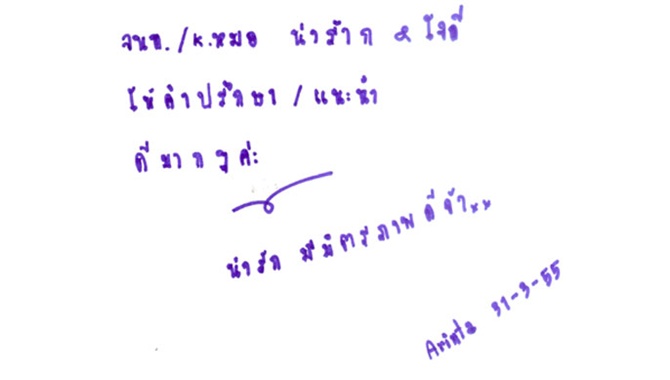 จนท./ค.หมอ น่ารัก & ใจดี
ให้คำปรึกษา / แนะนำ
ดีมากๆค่ะ
น่ารัก มีมิตรภาพดีจ้า**
31-3-55